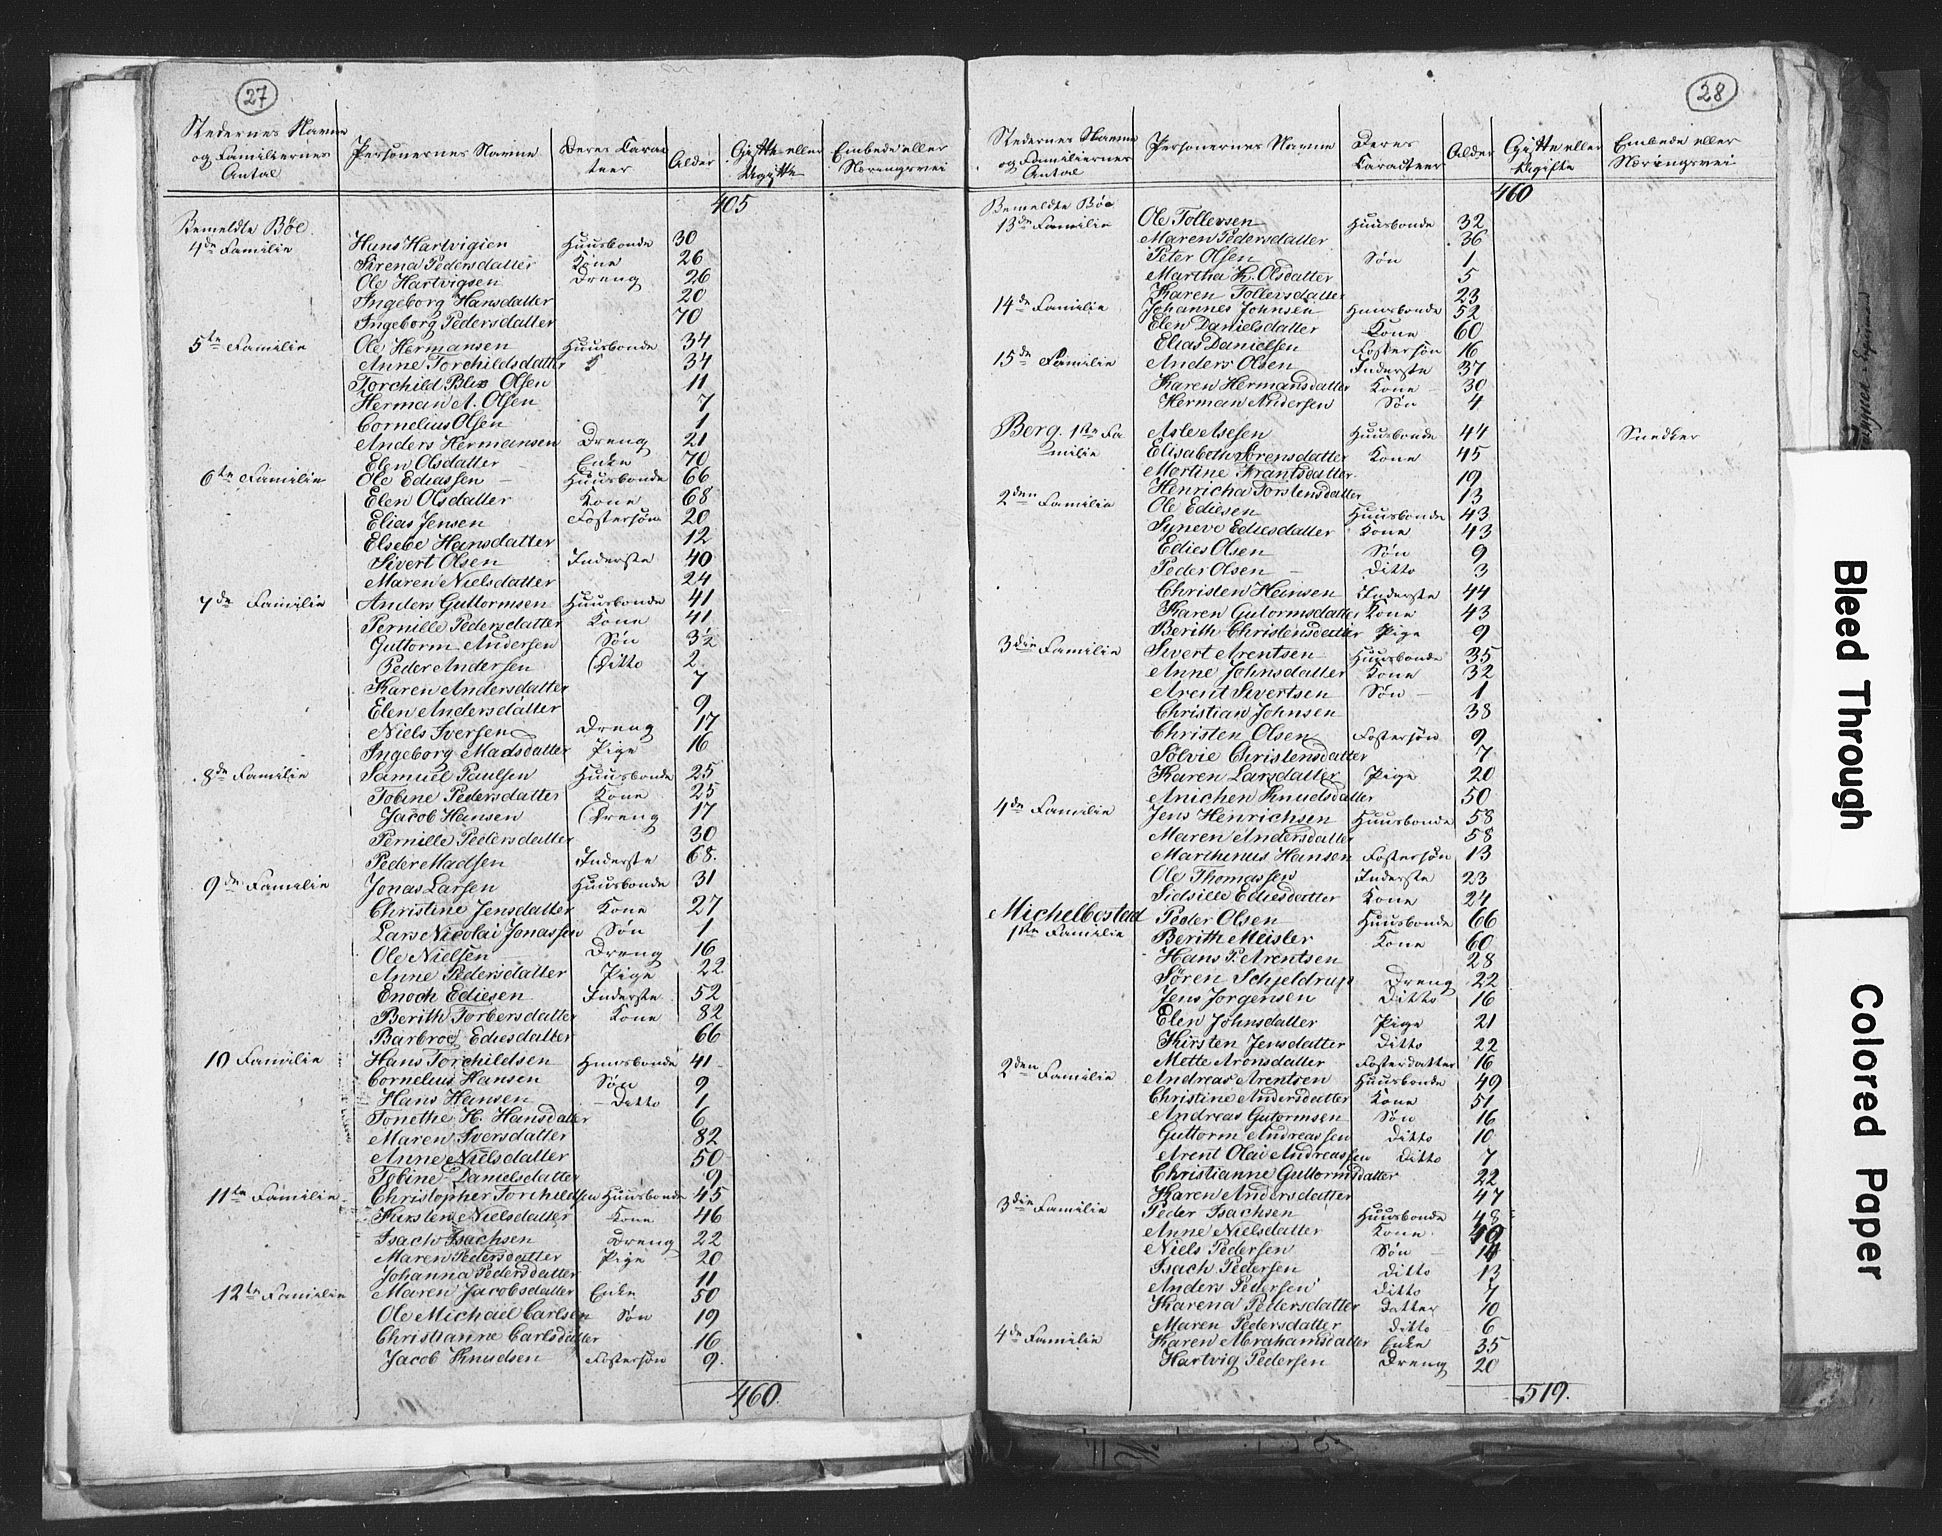 27
Stedernes Navne og Familiernes Antal | Personernes Navne | Deres Caracteer | Alder | Gifte eller Ugifte | Embede eller Næringsvei
405
Bemeldte Böe.
4de Familie | Hans Hartvigsen | Huusbonde | 30
Sirena Pedersdatter | Kone | 26
Ole Hartvigsen | Dreng | 26
Ingeborg Hansdatter | 20
Ingeborg Pedersdatter | 70
5te Familie | Ole Hermansen | Huusbonde | 34
Anne Torchildsdatter | 34
Torchild Blix Olsen | 11
Herman A. Olsen | 7
Cornelius Olsen | 1
Anders Hermansen | Dreng | 21
Elen Olsdatter | Enke | 70
6te Familie | Ole Ediassen | Huusbonde | 66
Elen Olsdatter | Kone | 68
Elias Jensen | Fostersøn | 20
Elsebe Hansdatter | 12
Sivert Olsen | Inderste | 40
Maren Nielsdatter | 24
7de Familie | Anders Guttormsen | Huusbonde | 41
Pernille Pedersdatter | Kone | 41
Guttorm Andersen | Søn | 3½
Peder Andersen | Ditto | 2
Karen Andersdatter | 7
Elen Andersdatter | 9
Niels Iversen | Dreng | 17
Ingeborg Madsdatter | Pige | 16
8de Familie | Samuel Paulsen | Huusbonde | 25
Tobine Pedersdatter | Kone | 25
Jacob Hansen | Dreng | 17
Pernille Pedersdatter | 30
Peder Madsen | Inderste | 68.
9de Familie | Jonas Larsen | Huusbonde | 31
Christine Jensdatter | Kone | 27
Lars Nicolai Jonassen | Søn | 1
Ole Nielsen | Dreng | 16
Anne Pedersdatter | Pige | 22
Enoch Ediesen | Inderste | 52
Berith Torbersdatter | Kone | 82
Barbroe Ediesdatter | 66
10 Familie | Hans Torchildsen | Huusbonde | 41
Cornelius Hansen | Søn | 9
Hans Hansen | Ditto | 1
Tonethe H. Hansdatter | 6
Maren Iversdatter | 82
Anne Nielsdatter | 50
Tobine Danielsdatter | 9
11te Familie | Christopher Torchildsen | Huusbonde | 45
Kirsten Nielsdatter | Kone | 46
Isach Isachsen | Dreng | 22
Maren Pedersdatter | Pige | 20
Johanna Pedersdatter | 11
12te Familie | Maren Jacobsdatter | Enke | 50
Ole Michael Carlsen | Søn | 19
Christianne Carlsdatter | 16
Jacob Knudsen | Fostersøn | 9.
460.
28
Stedernes Navne og Familiernes Antal | Personernes Navne | Deres Caracteer | Alder | Gifte eller Ugifte | Embede eller Næringsvei
460
Bemeldte Böe
13de Familie | Ole Tollersen | Huusbonde | 32
Maren Pedersdatter | 36
Peter Olsen | Søn | 1
Martha K. Olsdatter | 5
Karen Tollersdatter | 23
14de Familie | Johannes Johnsen | Huusbonde | 52
Elen Danielsdatter | Kone | 60
Elias Danielsen | Fostersøn | 16
15de Familie | Anders Olsen | Inderste | 37
Karen Hermansdatter | Kone | 30
Herman Andersen | Søn | 4
Berg. 1ste Familie | Asle Aslesen | Huusbonde | 44 | Snedker
Elisabeth Sørensdatter | Kone | 45
Martine Frantsdatter | 19
Henricha Torstensdatter | 13
2den Familie | Ole Ediesen | Huusbonde | 43
Syneve Ediesdatter | Kone | 43
Edies Olsen | Søn | 9
Peder Olsen | Ditto | 3
Christen Hansen | Inderste | 44
Karen Gutormsdatter | Kone | 43
Berith Christensdatter | Pige | 9
3die Familie | Sivert Arentsen | Huusbonde | 35
Anne Johnsdatter | Kone | 32
Arent Sivertsen | Søn | 1
Christian Johnsen | 38
Christen Olsen | Fostersøn | 9
Sølvie Christensdatter | 7
Karen Larsdatter | Pige | 20
Anichen Knudsdatter | 50
4de Familie | Jens Henrichsen | Huusbonde | 58
Maren Andersdatter | 58
Marthinus Hansen | Fostersøn | 13
Ole Thomassen | Inderste | 23
Sidsille Ediesdatter | Kone | 24
Michelbostad 1ste Familie | Peder Olsen | Huusbonde | 66
Berith Meisler | Kone | 60
Hans P. Arentsen | 28
Søren Schjeldrup | Dreng | 22
Jens Jørgensen | Ditto | 16
Elen Johnsdatter | Pige | 21
Kirsten Jensdatter | Ditto | 22
Mette Aronsdatter | Fosterdatter | 16
2den Familie | Andreas Arentsen | Huusbonde | 49
Christine Andersdatter | Kone | 51
Andreas Gutormsen | Søn | 16
Guttorm Andreassen | Ditto | 10
Arent Olai Andreassen | Ditto | 7
Christianne Guttormsdatter | 22
Karen Andersdatter | 47
3die Familie | Peder Isachsen | Huusbonde | 48
Anne Nielsdatter | Kone | 40
Niels Pedersen | Søn | 14
Isach Pedersen | Ditto | 13
Anders Pedersen | Ditto | 7
Karena Pedersdatter | Datter | 10
Maren Pedersdatter | Ditto | 6
4de Familie | Karen Abrahamsdatter | Enke | 35
Hartvig Pedersen | Dreng | 20
519.
Bleed Through
Colored Paper